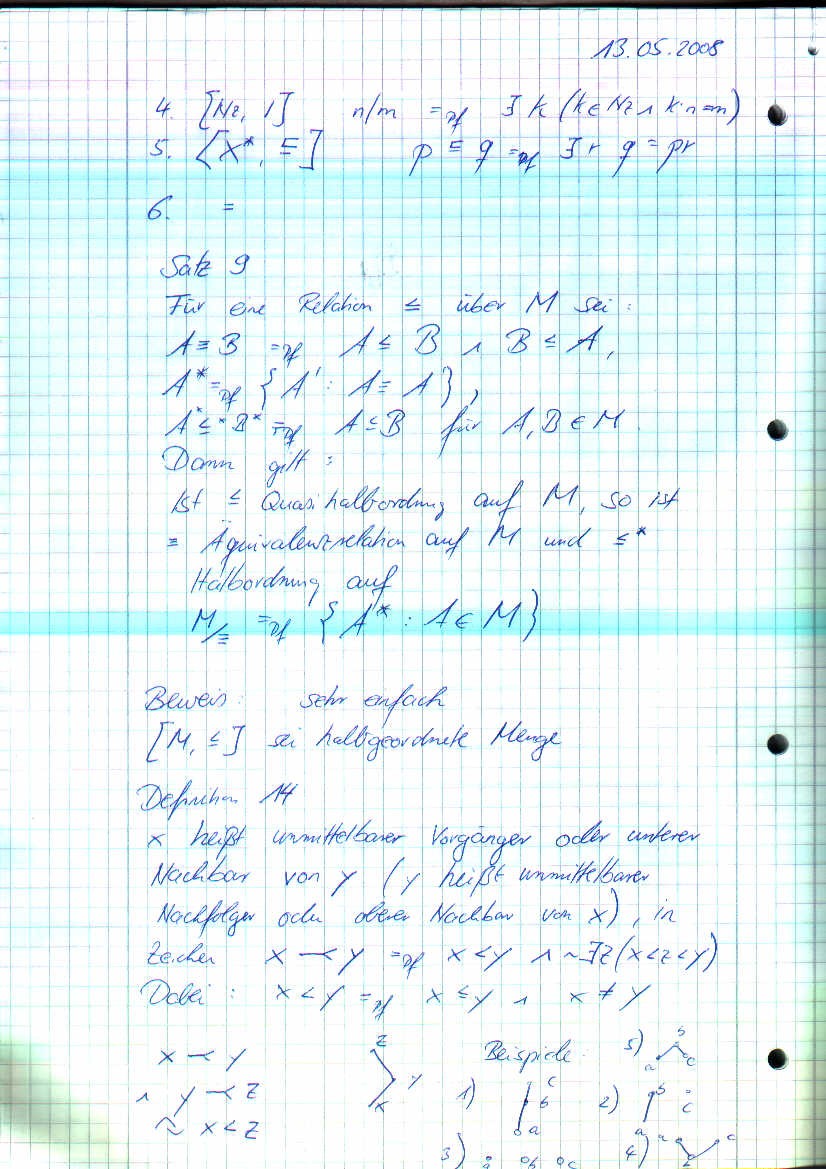 13.05.2008
4. [Nz, |] n/m =Df ∃ k (k ∈ Nz ∧ k·n=m)
5. [X*, ⊑] p ⊑ q =Df ∃ r q = pr
6. =
Satz 9
Für eine Relation ≤ über M sei:
A ≡ B =Df A ≤ B ∧ B ≤ A,
A* =Df { A' : A ≡ A' },
A* ≤* B* =Df A ≤ B für A, B ∈ M.
Dann gilt:
Ist ≤ Quasihalbordnung auf M, so ist
≡ Äquivalenzrelation auf M und ≤*
Halbordnung auf
M/≡ =Df { A* : A ∈ M }
Beweis: sehr einfach
[M, ≤] sei halbgeordnete Menge
Definition 14
x heißt unmittelbarer Vorgänger oder unterer
Nachbar von y (y heißt unmittelbarer
Nachfolger oder oberer Nachbar von x), in
Zeichen x —< y =Df x < y ∧ ~∃z(x<z<y)
Dabei: x < y =Df x ≤ y ∧ x ≠ y
x —< y
∧ y —< z
x < z
z
y
x
Beispiele:
5) a b c
1) c b a
2) b a c
3) a b c
4) a b c